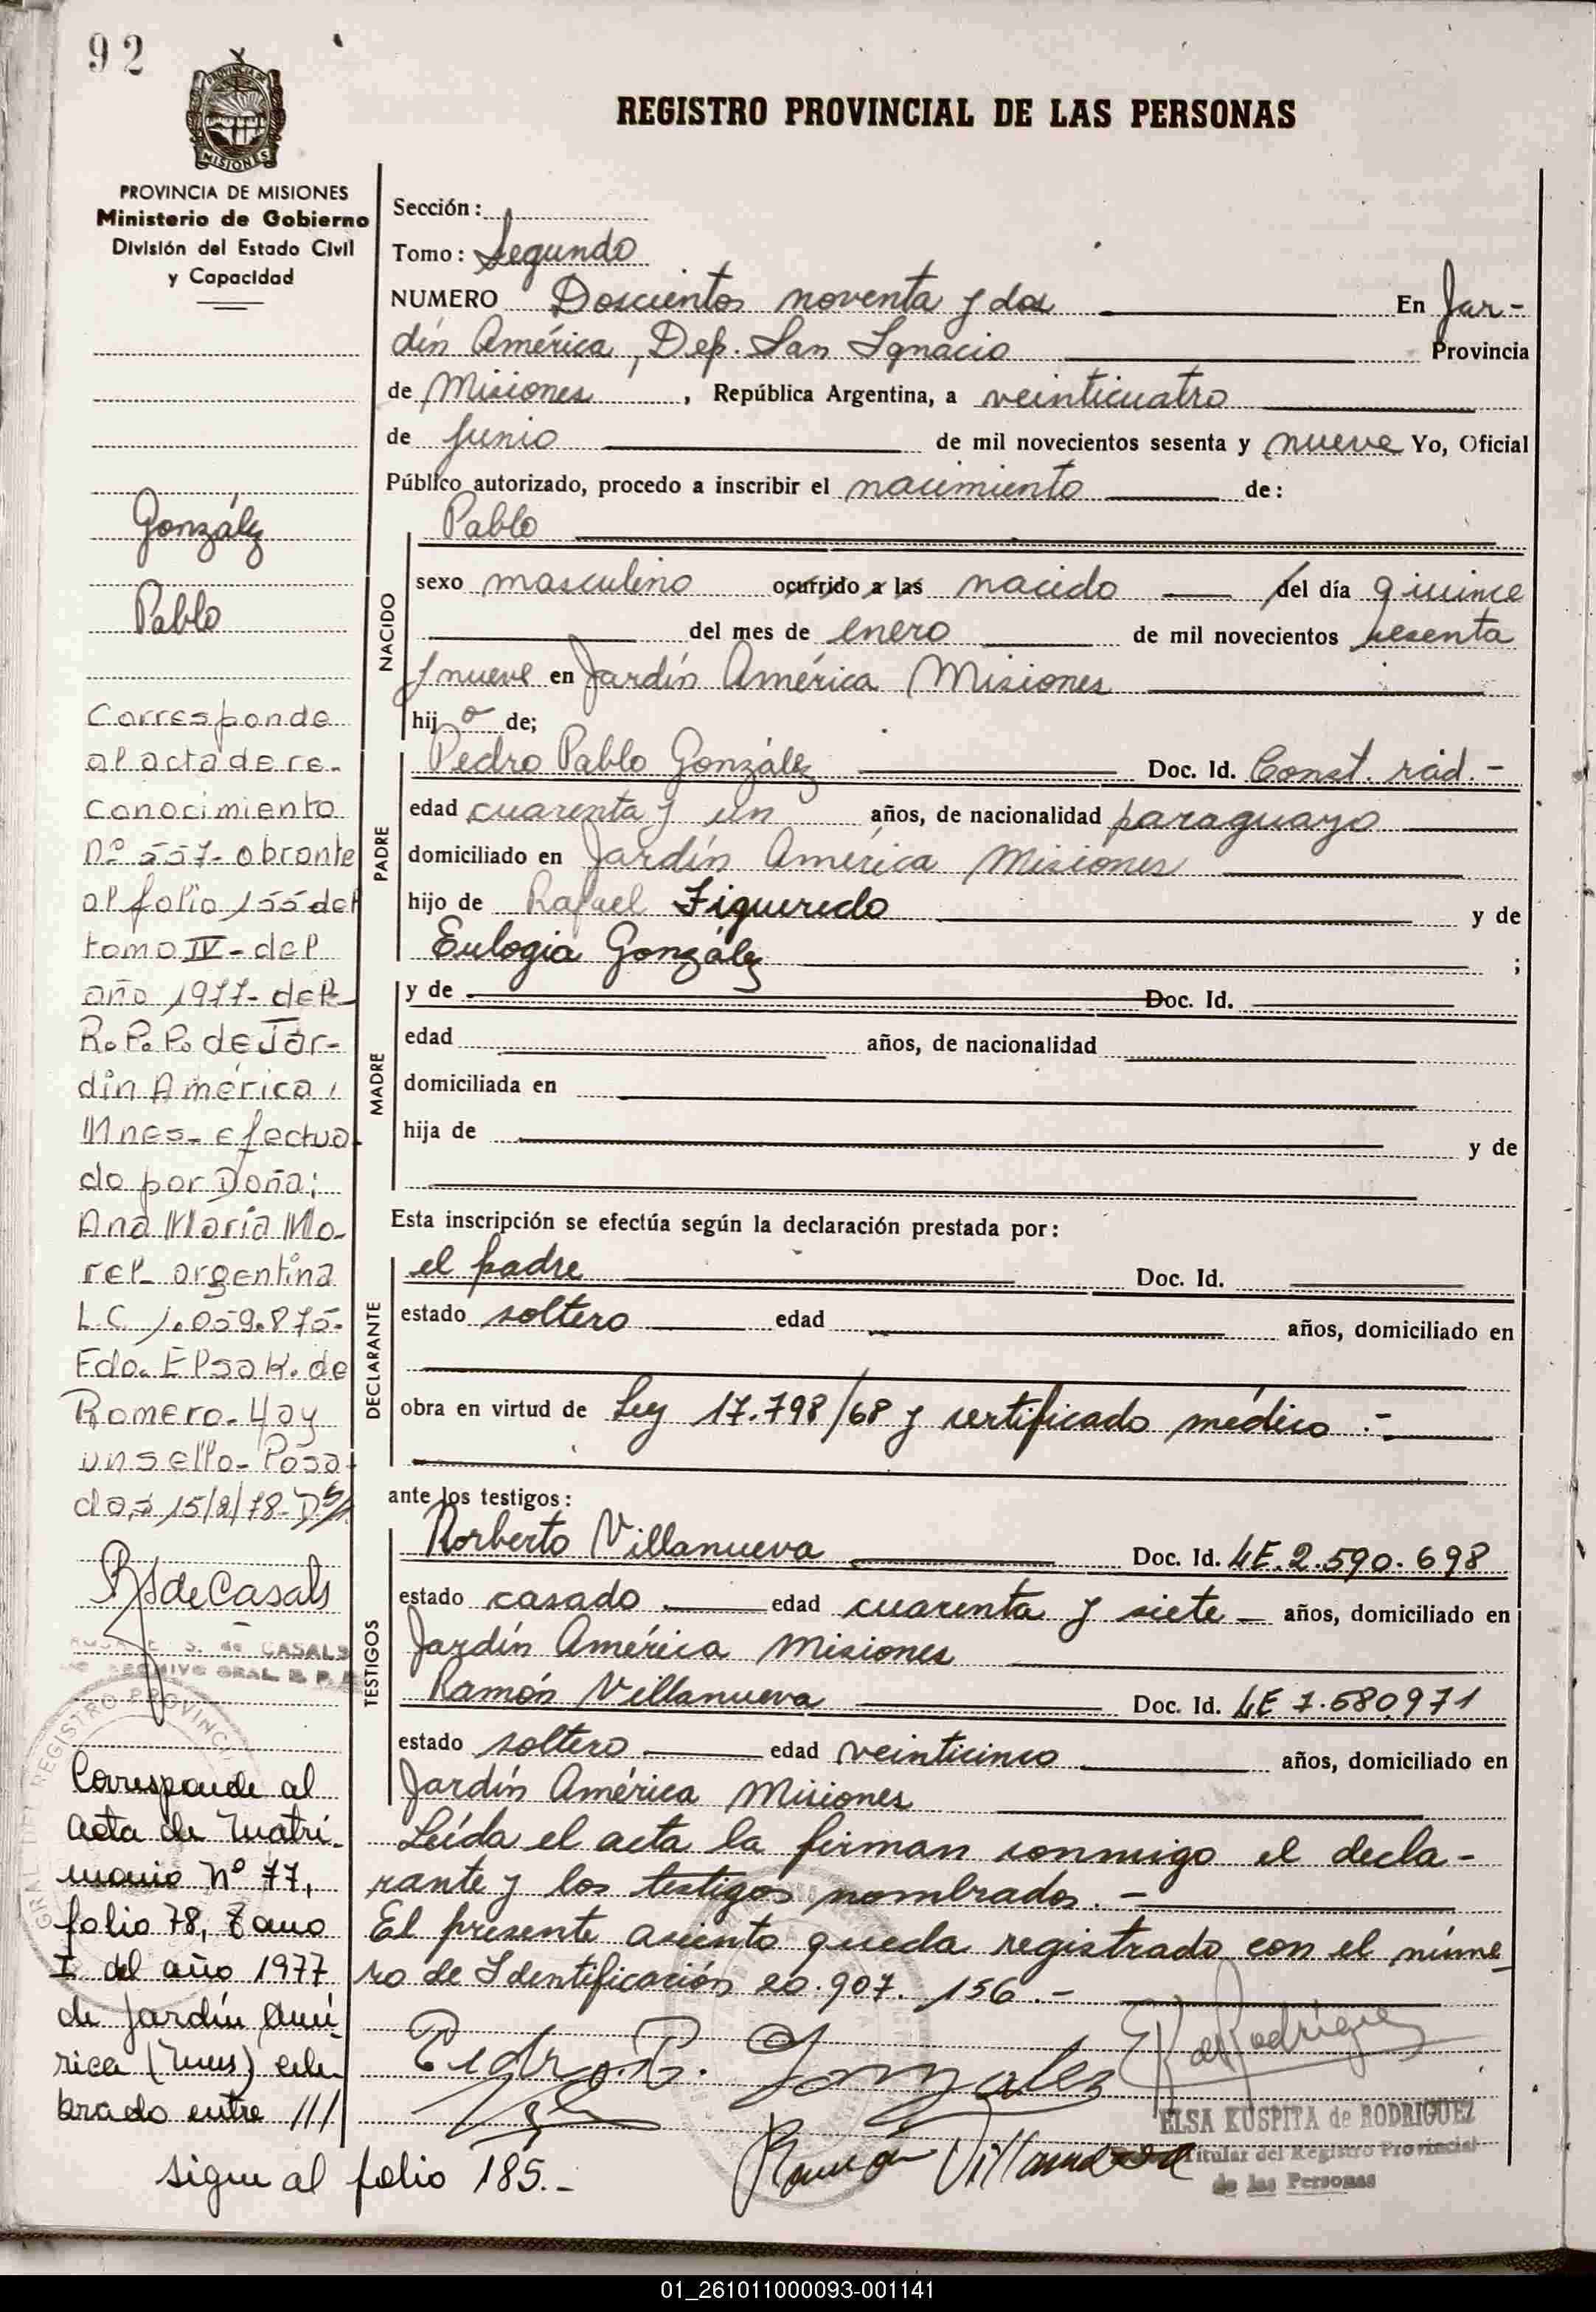 92
PROVINCIA DE MISIONES
PROVINCIA DE MISIONES
Ministerio de Gobierno
División del Estado Civil
y Capacidad
González
Pablo
Corresponde
al acta de re-
conocimiento
nº 557- obrante
al folio 155 del
tomo IV- del
año 1977- del
R.P.P. de Jar-
dín América,
Mnes- efectua-
do por Doña;
Ana María Mo-
rel- argentina
L C 1.059.875-
Fdo. Elsa K. de
Romero- Hay
un sello- Posa-
das 15/2/78-
RSdeCasals
S. de CASALS
ARCHIVO GRAL. R. P. P.
REGISTRO PROVINCI
Corresponde al
Acta de Matri-
monio Nº 77,
folio 78, Tomo
I del año 1977
de Jardín Amé-
rica (Mnes) cele-
brado entre ///
sigue al folio 185.-
REGISTRO PROVINCIAL DE LAS PERSONAS
Sección:
Tomo: Segundo
NUMERO Doscientos noventa y dos En Jar-
dín América, Dep. San Ignacio Provincia
de Misiones, República Argentina, a veinticuatro
de junio de mil novecientos sesenta y nueve Yo, Oficial
Público autorizado, procedo a inscribir el nacimiento de:
NACIDO
Pablo
sexo masculino ocurrido a las nacido del día quince
del mes de enero de mil novecientos sesenta
y nueve en Jardín América Misiones
hijo de;
PADRE
Pedro Pablo González Doc. Id. Const. rad.-
edad cuarenta y un años, de nacionalidad paraguayo
domiciliado en Jardín América Misiones
hijo de Rafael Figueredo y de
Eulogia González ;
MADRE
y de Doc. Id.
edad años, de nacionalidad
domiciliada en
hija de y de
Esta inscripción se efectúa según la declaración prestada por:
DECLARANTE
el padre Doc. Id.
estado soltero edad años, domiciliado en
obra en virtud de Ley 17.798/68 y certificado médico.-
ante los testigos:
TESTIGOS
Norberto Villanueva Doc. Id. LE.2.590.698
estado casado edad cuarenta y siete años, domiciliado en
Jardín América Misiones
Ramón Villanueva Doc. Id. LE 7.580.971
estado soltero edad veinticinco años, domiciliado en
Jardín América Misiones
Leída el acta la firman conmigo el decla-
rante y los testigos nombrados.-
El presente asiento queda registrado con el núme-
ro de Identificación 20.907.156.-
Pedro P. Gonzalez
K de Rodriguez
Ramón Villanueva
ELSA KUSPITA de RODRIGUEZ
Titular del Registro Provincial
de las Personas
01_261011000093-001141